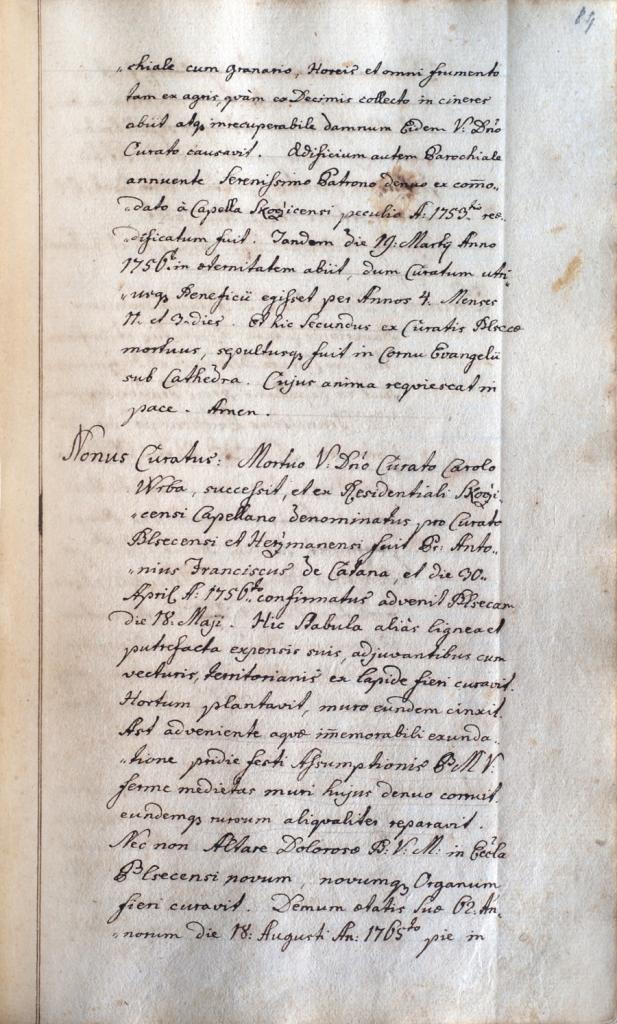 84
„chiale cum granario, Horeis et omni frumento
tam ex agris, quàm ex Decimis collecto in cineres
abiit atq; irrecuperabile damnum Eidem V: Dno
Curato causavit. Ædificium autem Parochiale
annuente Serenissimo Patrono denuo ex com̄o-
„dato à Capella Skogicensi peculio A: 1753to ree-
„dificatum fuit. Tandem die 19: Martij Anno
1756to in æternitatem abiit, dum Curatum utri-
„usq; Beneficii egisset per Annos 4. Menses
11. et 3. dies. Et hic secundus ex Curatis Plsecæ
mortuus, sepultusq; fuit in Cornu Evangelii
sub Cathedra. Cujus anima requiescat in
pace. Amen.
Nonus Curatus: Mortuo V: Dno Curato Carolo
Wrba, successit, et ex Residentiali Skogi-
„censi Capellano denominatus pro Curato
Plsecensi et Herzmanensi fuit Pr: Anto-
„nius Franciscus de Catana, et die 30..
April A: 1756to confirmatus advenit Plsecam
die 18: Maji. Hic stabula aliàs lignea et
putrefacta expensis suis, adjuvantibus cum
vecturis, territorianis ex lapide fieri curavit.
Hortum plantavit, muro eundem cinxit.
Ast adveniente aquæ im̄emorabili exunda-
„tione pridie festi Assumptionis B M V:
ferme medietas muri hujus denuo corruit.
eundemq; rursum aliqualiter reparavit.
Nec non Altare Dolorosæ B: V: M: in Eccla
Plsecensi novum, novumq; Organum
fieri curavit. Demum ætatis suæ 62. An-
„norum die 18: Augusti An: 1765to pie in